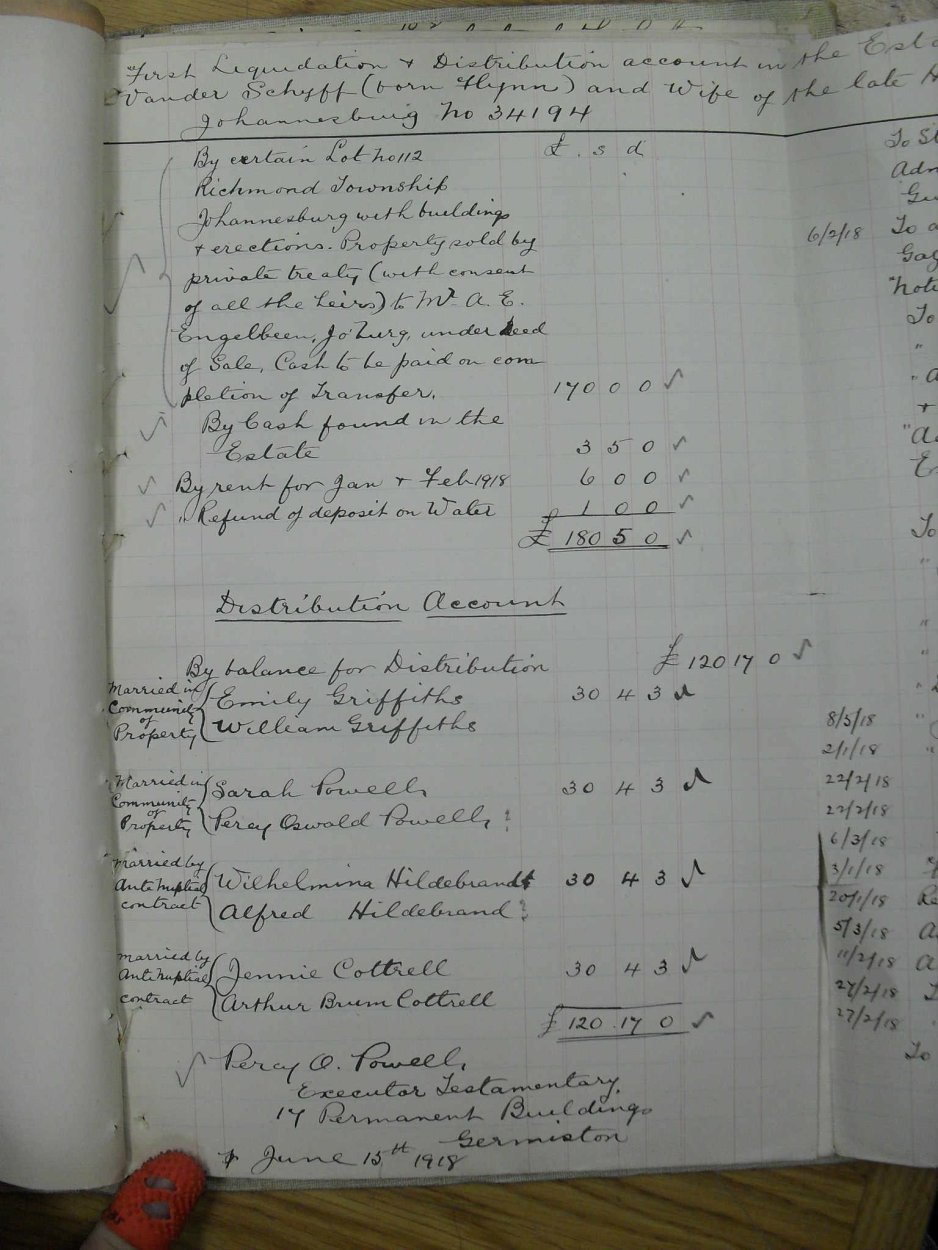 "First Liquidation & Distribution account in the Esta
Vander Schyff (born Flynn) and Wife of the late H
Johannesburg No 34194
By certain Lot no 112 £ . s d
Richmond Township
Johannesburg with buildings
& erections. Property sold by
private treaty (with consent
of all the heirs) to Mr. A. E.
Engelbeen, Jo'burg, under deed
of Sale, Cash to be paid on com
pletion of Transfer. 170 0 0
By Cash found in the
Estate 3 5 0
By rent for Jan & Feb 1918 6 0 0
" Refund of deposit on Water £ 1 0 0
£ 180 5 0
Distribution Account
By balance for Distribution £ 120 17 0
Married in Community of Property
Emily Griffiths 30 4 3
William Griffiths
Married in Community of Property
Sarah Powell 30 4 3
Percy Oswald Powell
Married by Anti Nuptial contract
Wilhelmina Hildebrandt 30 4 3
Alfred Hildebrand
Married by Anti Nuptial contract
Jennie Cottrell 30 4 3
Arthur Brum Cottrell
£ 120 . 17 0
Percy O. Powell,
Executor Testamentary
17 Permanent Buildings
Germiston
June 15th 1918
To St
Adm
6/2/18 To a
Gaz
"Note
To
"
" A
+
"Ad
E
To
"
"
"
"
8/5/18 "
2/1/18 "
22/2/18
22/2/18
6/3/18
3/1/18
20/1/18 Re
5/3/18 A
11/2/18 A
27/2/18
27/2/18
To